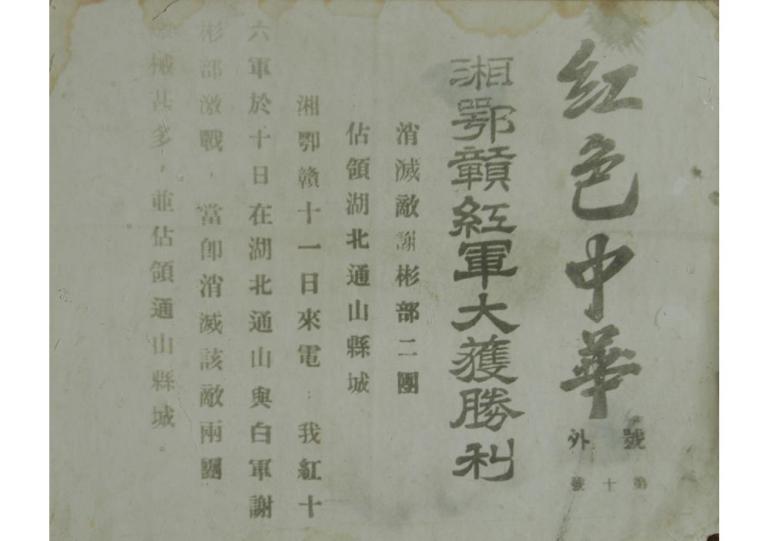 紅色中華
號外
第十號
湘鄂贛紅軍大獲勝利
消滅敵謝彬部二團
佔領湖北通山縣城
湘鄂贛十一日來電：我紅十
六軍於十日在湖北通山與白軍謝
彬部激戰，當即消滅該敵兩團
械甚多，並佔領通山縣城。